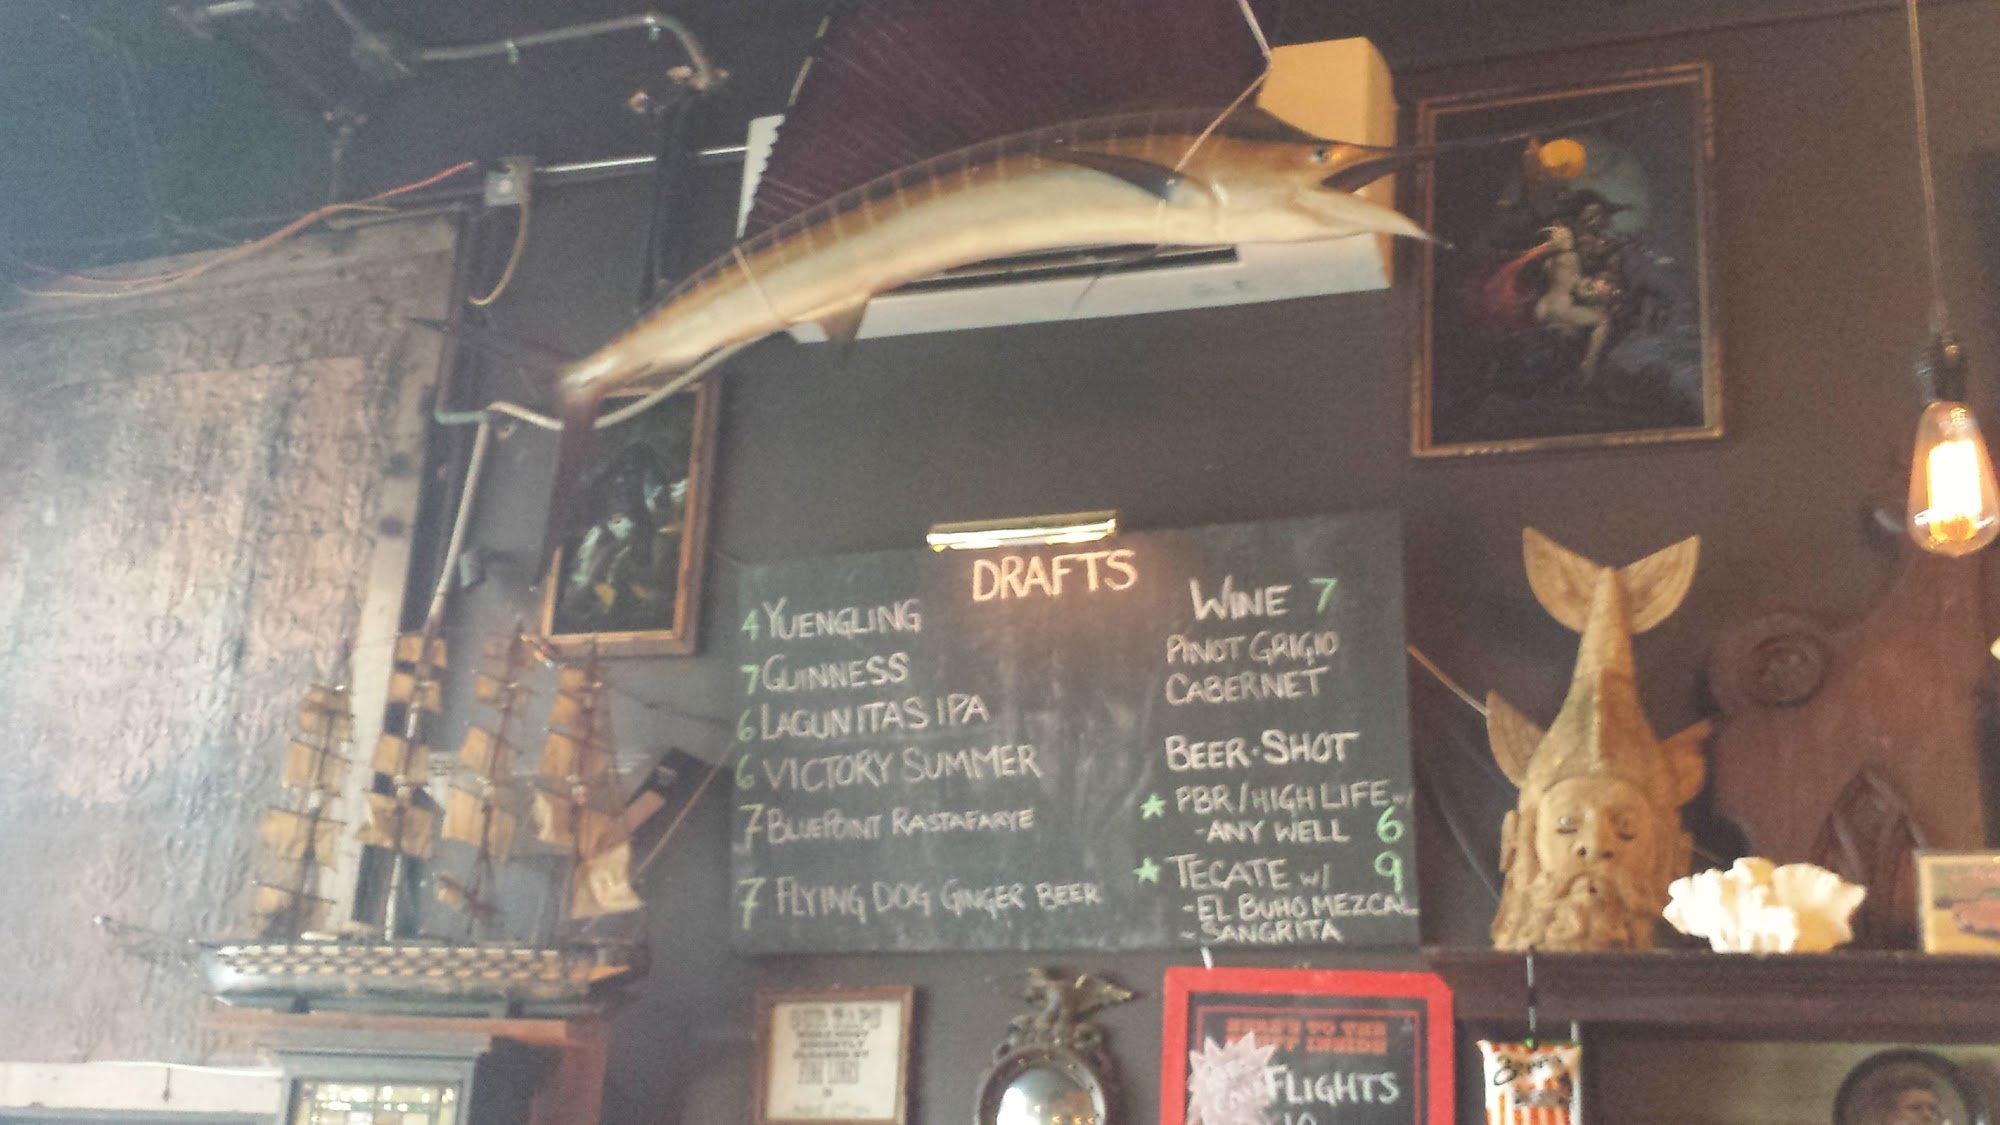 DRAFTS
4 YUENGLING
7 GUINNESS
6 LAGUNITAS IPA
6 VICTORY SUMMER
7 BLUEPOINT RASTAFARYE
7 FLYING DOG GINGER BEER
WINE 7
PINOT GRIGIO
CABERNET
BEER·SHOT
★ PBR/HIGH LIFE w/
-ANY WELL 6
★ TECATE w/ 9
-EL BUHO MEZCAL
-SANGRITA
HERE'S TO THE
INSIDE
FLIGHTS
10